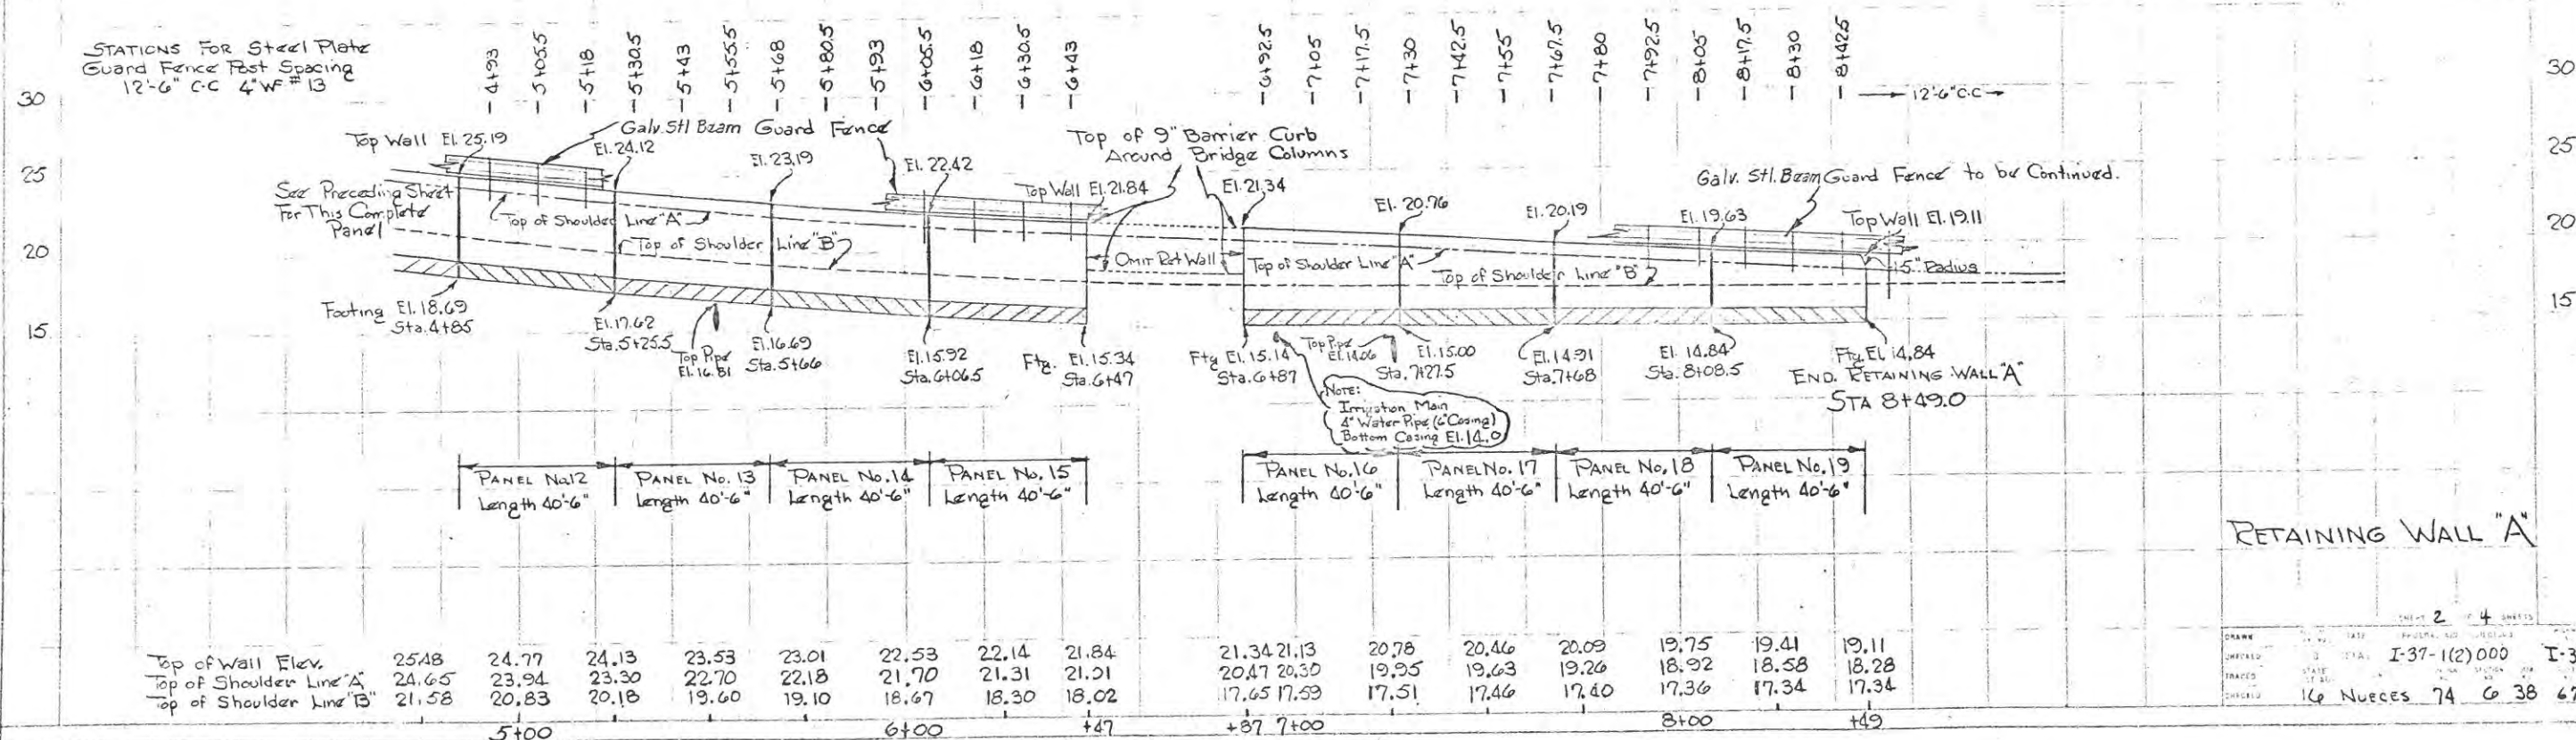 STATIONS FOR Steel Plate
Guard Fence Post Spacing
12'-6" C-C 4"WF #13
-4+93
-5+05.5
-5+18
-5+30.5
-5+43
-5+55.5
-5+68
-5+80.5
-5+93
-6+05.5
-6+18
-6+30.5
-6+43
-6+92.5
-7+05
-7+17.5
-7+30
-7+42.5
-7+55
-7+67.5
-7+80
-7+92.5
-8+05
-8+17.5
-8+30
-8+42.5
12'-6" C-C
30
25
20
15
30
25
20
15
Top Wall El. 25.19
Galv. Stl Beam Guard Fence
El. 24.12
El. 23.19
El. 22.42
Top Wall El. 21.84
Top of 9" Barrier Curb
Around Bridge Columns
El. 21.34
El. 20.76
El. 20.19
El. 19.63
Galv. Stl. Beam Guard Fence to be Continued.
Top Wall El. 19.11
See Preceding Sheet
For This Complete
Panel
Top of Shoulder Line "A"
Top of Shoulder Line "B"
Omit Ret Wall
Top of Shoulder Line "A"
Top of Shoulder Line "B"
5" Radius
Footing El. 18.69
Sta. 4+85
El. 17.62
Sta. 5+25.5
Top Pipe
El. 16.81
El. 16.69
Sta. 5+66
El. 15.92
Sta. 6+06.5
Ftg. El. 15.34
Sta. 6+47
Ftg El. 15.14
Sta. 6+87
Top Pipe
El. 14.06
El. 15.00
Sta. 7+27.5
El. 14.91
Sta. 7+68
El. 14.84
Sta. 8+08.5
Ftg. El. 14.84
END. RETAINING WALL "A"
STA 8+49.0
NOTE:
Irrigation Main
4" Water Pipe (6" Casing)
Bottom Casing El. 14.0
PANEL No. 12
Length 40'-6"
PANEL No. 13
Length 40'-6"
PANEL No. 14
Length 40'-6"
PANEL No. 15
Length 40'-6"
PANEL No. 16
Length 40'-6"
PANEL No. 17
Length 40'-6"
PANEL No. 18
Length 40'-6"
PANEL No. 19
Length 40'-6"
RETAINING WALL "A"
Top of Wall Elev. 25.48 24.77 24.13 23.53 23.01 22.53 22.14 21.84 21.34 21.13 20.78 20.46 20.09 19.75 19.41 19.11
Top of Shoulder Line "A" 24.65 23.94 23.30 22.70 22.18 21.70 21.31 21.01 20.47 20.30 19.95 19.63 19.26 18.92 18.58 18.28
Top of Shoulder Line "B" 21.58 20.83 20.18 19.60 19.10 18.67 18.30 18.02 17.65 17.59 17.51 17.46 17.40 17.36 17.34 17.34
5+00 6+00 +47 +87 7+00 8+00 +49
SHEET 2 OF 4 SHEETS
DRAWN
CHECKED
TRACED
CHECKED
I-37-1(2)000 I-3
16 NUECES 74 6 38 67